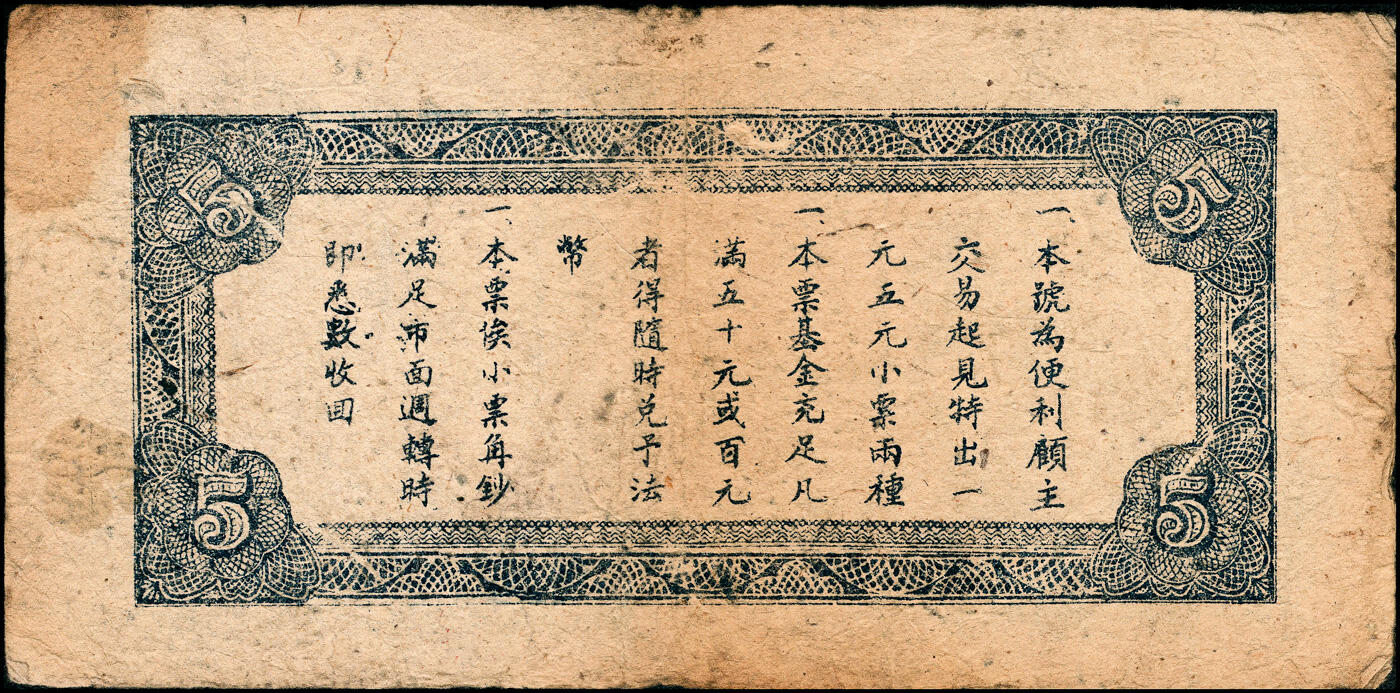 一、本號為便利顧主
交易起見特出一
元五元小票兩種
一、本票基金充足凡
滿五十元或百元
者得隨時兑予法
幣
一、本票俟小票角鈔
滿足市面週轉時
即悉數收回
5
5
5
5